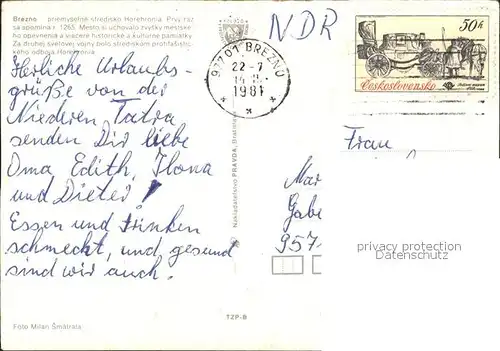 Brezno priemyselné stredisko Horehronia. Prvý raz
sa spomína r. 1265. Mesto si uchovalo zvyšky mestské-
ho opevnenia a viaceré historické a kultúrne pamiatky.
Za druhej svetovej vojny bolo strediskom protifašistic-
kého odboja Horehronia.
NDR
977 01 BREZNO
22.-7
1981
50h
Československo
Herliche Urlaubs-
grüße von der
Niederen Tatra
senden Dir liebe
Oma Edith, Ilona
und Dieter!
Essen und Trinken
schmeckt, und gesund
sind wir auch.
Nakladateľstvo PRAVDA, Bratislava
Frau
Mar
Gabe
957
privacy protection
oldthing.com
TZP-B
Foto Milan Šmátrala